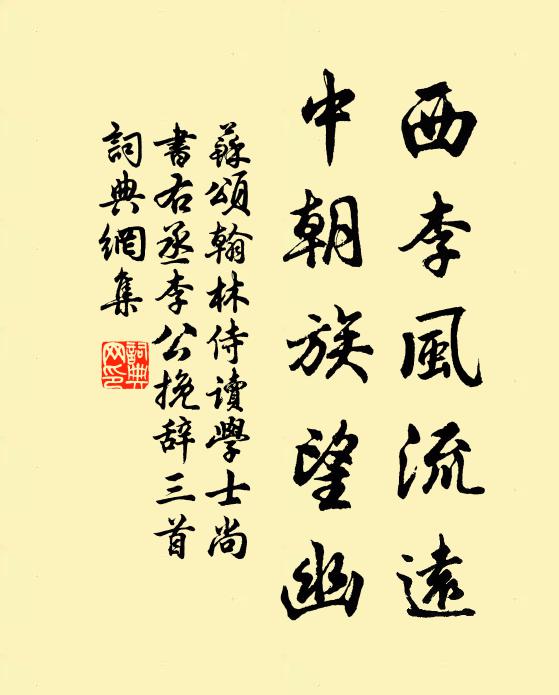 西李風流遠
中朝族望幽
蘇頌翰林侍讀學士尚
書右丞李公挽辞三首
詞典網集
詞典网印